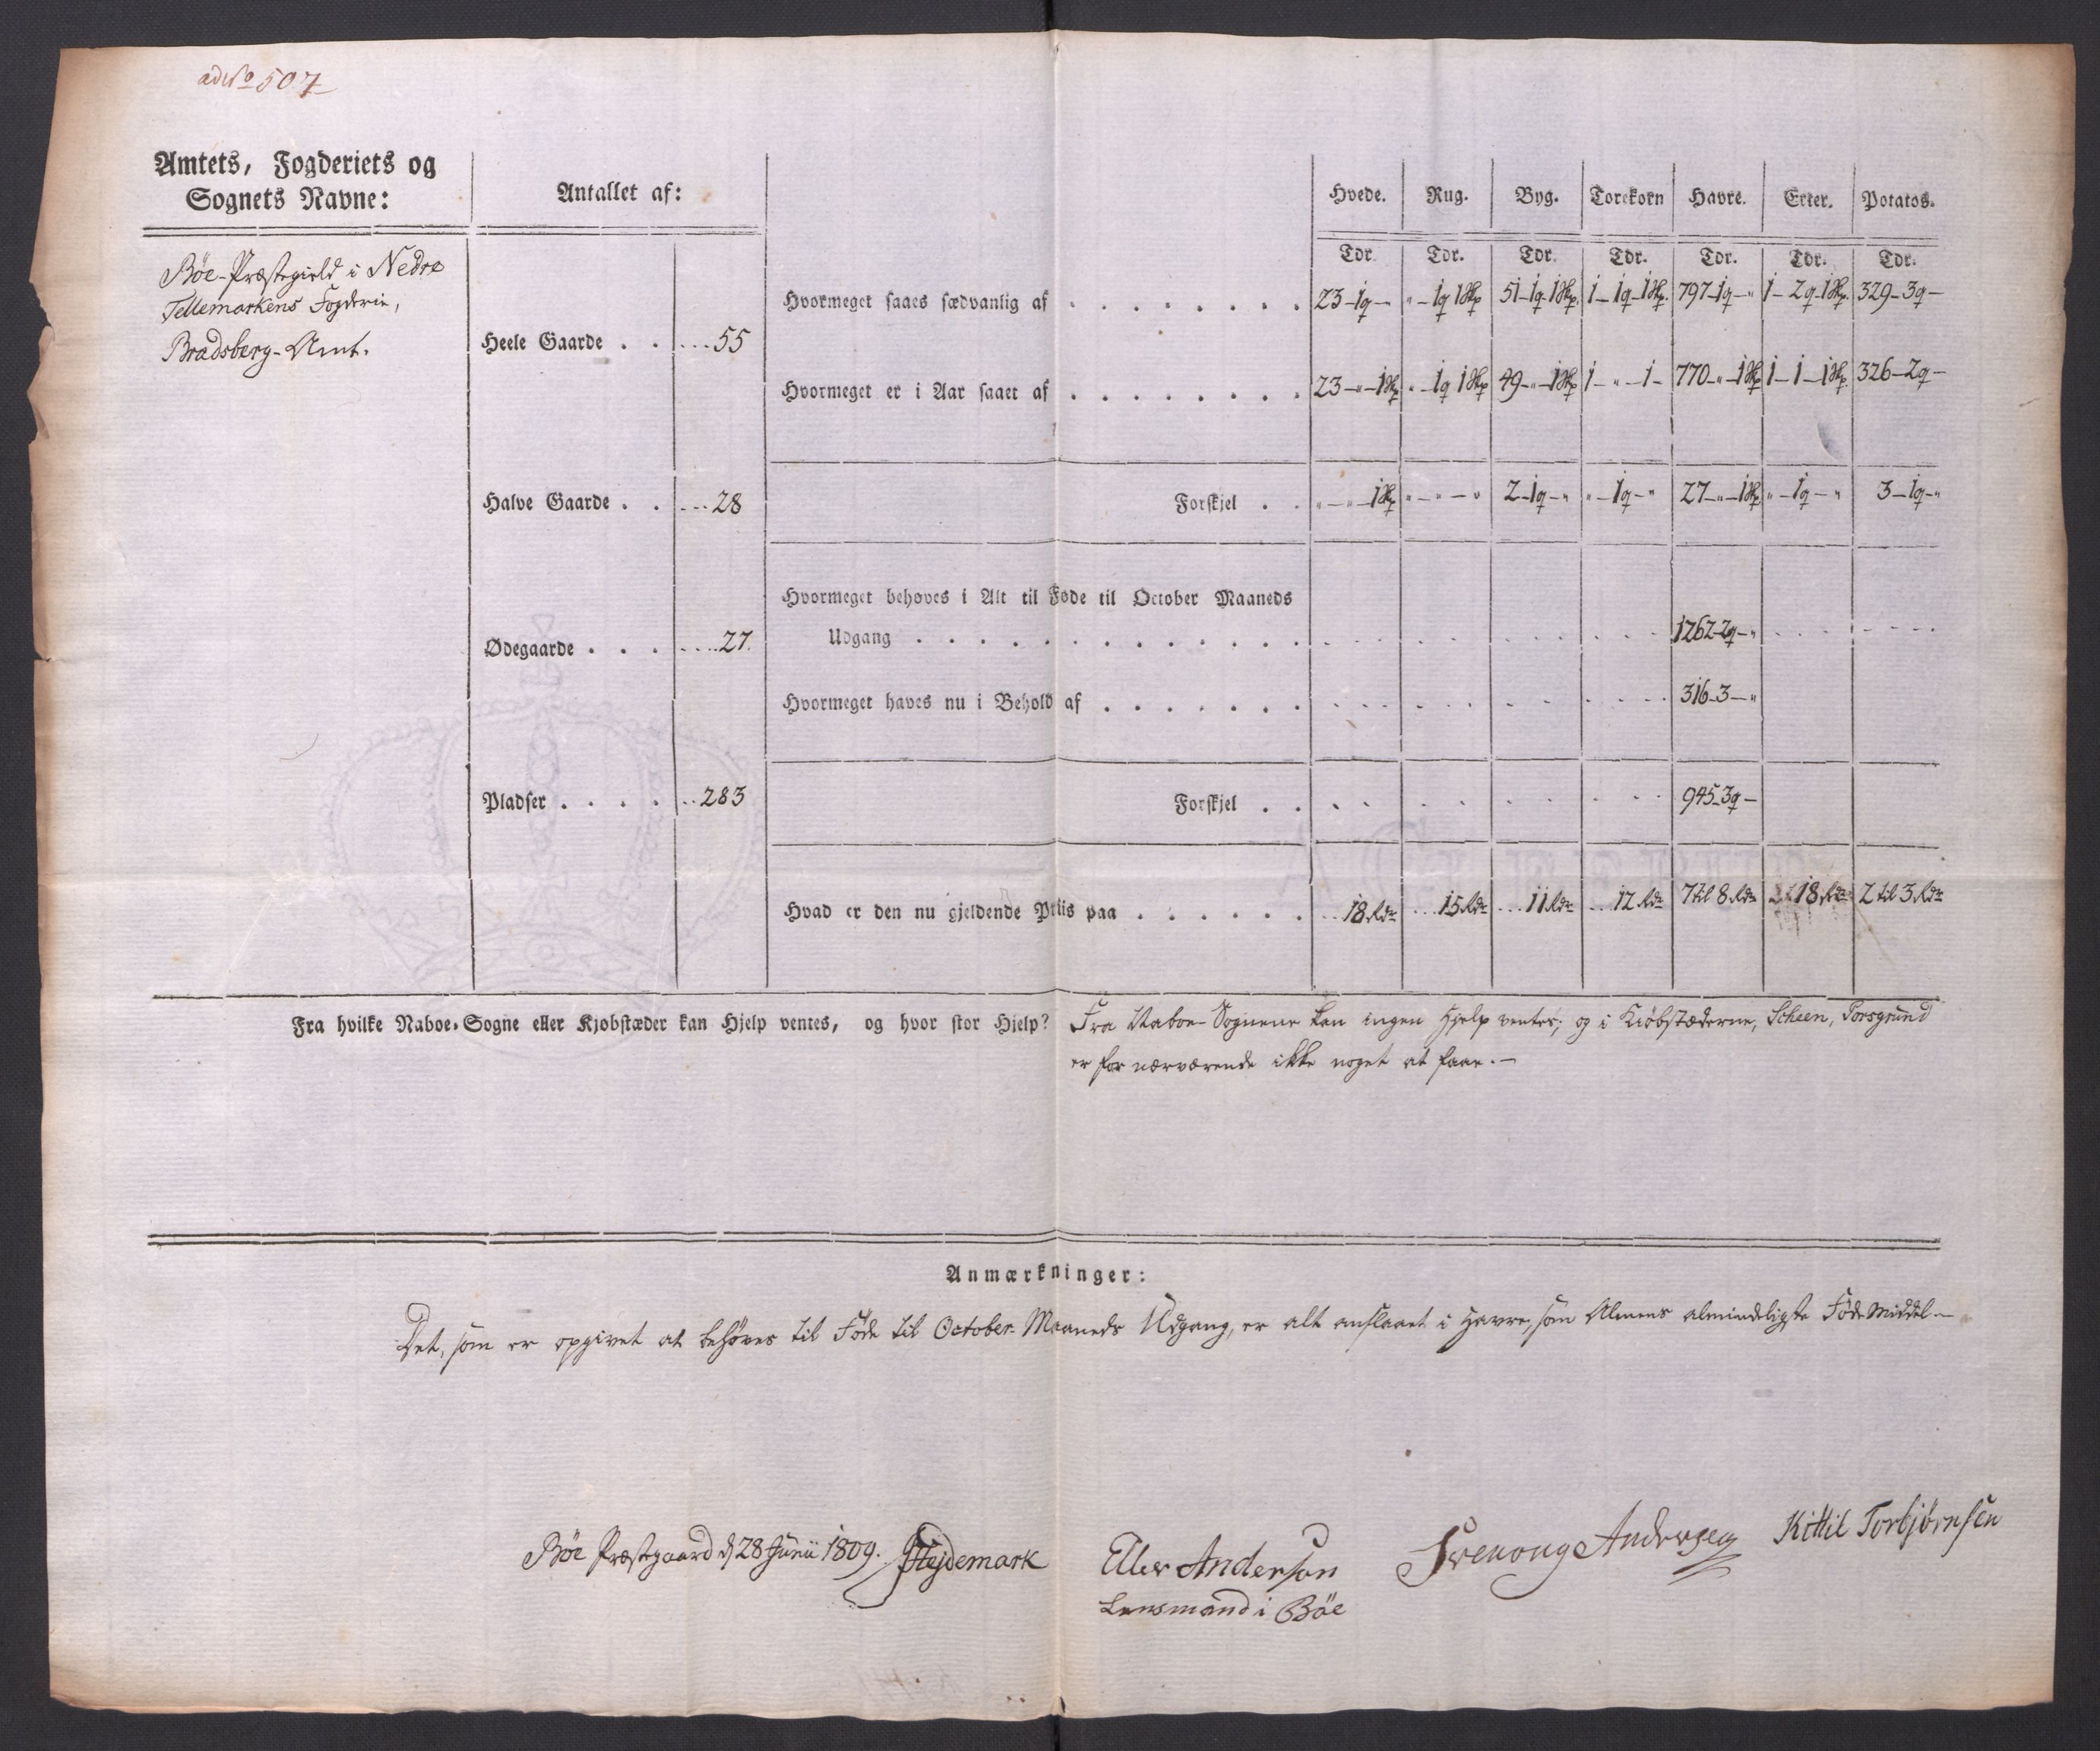 ad No 507
Amtets, Fogderiets og
Sognets Navne:
Antallet af:
Hvede. Rug. Byg. Torekorn Havre. Erter. Potatos.
Tdr. Tdr. Tdr. Tdr. Tdr. Tdr. Tdr.
Bøe-Præstegield i Nedre
Tellemarkens Fogderie,
Bradsberg-Amt.
Heele Gaarde . . ...55
Halve Gaarde . . ...28
Ødegaarde . . . ....27.
Pladser . . . . ..283
Hvormeget saaes sædvanlig af . . . . . . . 23-1q-" "-1q 1Skp 51-1q-1Skp. 1-1q-1Skp. 797-1q-" 1-2q-1Skp. 329-3q-
Hvormeget er i Aar saaet af . . . . . . . . 23-"-1Skp "-1q 1Skp 49-"-1Skp 1-"-1- 770-"-1Skp 1-1-1Skp 326-2q-
Forskjel . . "-"-1Skp "-"-" 2-1q-" "-1q-" 27-"-1Skp "-1q-" 3-1q-"
Hvormeget behøves i Alt til Føde til October Maaneds
Udgang . . . . . . . . . . . . 1262-2q-"
Hvormeget haves nu i Behold af . . . . . . . 316-3-"
Forskjel . . 945-3q-
Hvad er den nu gjeldende Priis paa . . . . . . ..18 Rdr ...15 Rdr ...11 Rdr ...12 Rdr 7 til 8 Rdr 18 Rdr 2 til 3 Rdr
Fra hvilke Naboe-Sogne eller Kjøbstæder kan Hjelp ventes, og hvor stor Hjelp? Fra Naboe-Sognene kan ingen Hjelp ventes; og i Kiøbstæderne, Scheen, Porsgrund
er for nærværende ikke noget at faae.-
Anmærkninger:
Det, som er opgivet at behøves til Føde til October-Maaneds Udgang, er alt anslaaet i Havre, som Almuens almindeligste Fødemiddel.-
Bøe Præstegaard d. 28 Junii 1809. Hejdemark
Ellev Anderson
Lensmand i Böe
Svenong Andersen
Kittil Torbjørnsen